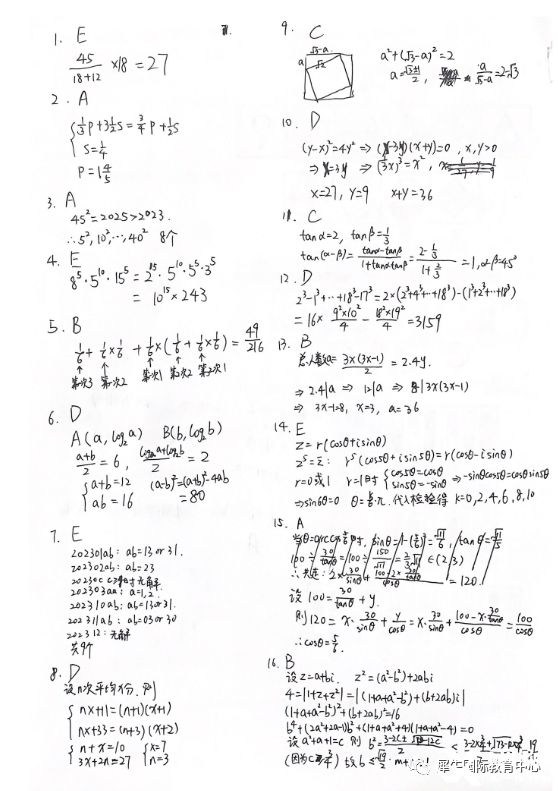 1. E
45/(18+12) ×18 = 27
2. A
1/3 p + 3 1/2 s = 3/4 p + 1/2 s
s = 1/4
p = 1 4/5
3. A
45² = 2025 > 2023.
∴ 5², 10², ⋯, 40² 8个
4. E
8⁵·5¹⁰·15⁵ = 2¹⁵·5¹⁰·5⁵·3⁵
= 10¹⁵ × 243
5. B
1/6 + 1/6 × 1/6 + 1/6 × (1/6 + 1/6 × 1/6) = 49/216
第1次3 第2次2 第1次1 第2次2 第2次1
6. D
A(a, log₂a) B(b, log₂b)
(a+b)/2 = 6, (log₂a + log₂b)/2 = 2
a+b = 12 (a-b)² = (a+b)² - 4ab
ab = 16 = 80
7. E
202301ab: ab = 13 or 31.
202302ab: ab = 23
202303aa: a = 1, 2.
202310ab: ab = 13 or 31.
202311ab: ab = 03 or 30
202312: 无解
共9个
8. D
设n次平均x分, 则
nx+11 = (n+1)(x+1)
nx+33 = (n+3)(x+2)
n+x = 10 x = 7
3x+2n = 27 n = 3
9. C
√3-a
a
√2
a² + (√3-a)² = 2
a = (√3+1)/2, a/(√3-a) = 2+√3
10. D
(y-x)² = 4y² ⇒ (x-3y)(x+y) = 0, x, y > 0
⇒ x = 3y ⇒ (1/3 x)³ = x²,
x = 27, y = 9 x+y = 36
11. C
tanα = 2, tanβ = 1/3
tan(α-β) = (tanα-tanβ)/(1+tanαtanβ) = (2-1/3)/(1+2/3) = 1, α-β = 45°
12. D
2³-1³+⋯+18³-17³ = 2×(2³+4³+⋯+18³)-(1³+2³+⋯+18³)
= 16 × 9²×10²/4 - 18²×19²/4 = 3159
13. B
总人数 = 3x(3x-1)/2 = 2.4y.
⇒ 2.4|a ⇒ 12|a ⇒ 8|3x(3x-1)
⇒ 3x-1=8, x = 3, a = 36
14. E
z = r(cosθ+isinθ)
z⁵ = z̄: r⁵(cos5θ+isin5θ) = r(cosθ-isinθ)
r = 0或1 r=1时 cos5θ = cosθ sin5θ = -sinθ ⇒ -sinθcos5θ = cosθsin5θ
⇒ sin6θ = 0 θ = k/6·π. 代入检验得 k = 0, 2, 4, 6, 8, 10
15. A
设 100 = x·30/tanθ + y.
则 120 = x·30/sinθ + y/cosθ = x·30/sinθ + (100 - x·30/tanθ)/cosθ = 100/cosθ
∴ cosθ = 5/6.
16. B
设 z = a+bi. z² = (a²-b²)+2abi
4 = |1+z+z²| = |(1+a+a²-b²)+(b+2ab)i|
(1+a+a²-b²)²+(b+2ab)² = 16
b⁴+(2a²+2a-1)b²+(1+a+a²+4)(1+a+a²-4) = 0
设 a²+a+1 = c 则
犀牛国际教育中心